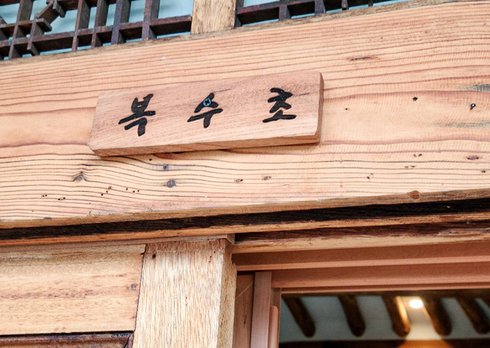 복수초